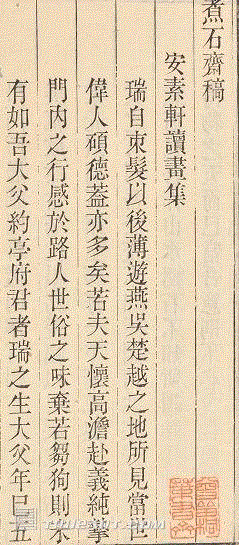 煮石齋稿
安素軒讀畫集
瑞自束髮以後薄遊燕吳楚越之地所見當世
偉人碩德蓋亦多矣若夫天懷高澹赴義純摯
門內之行感於路人世俗之味棄若芻狗則未
有如吾大父約亭府君者瑞之生大父年巳五